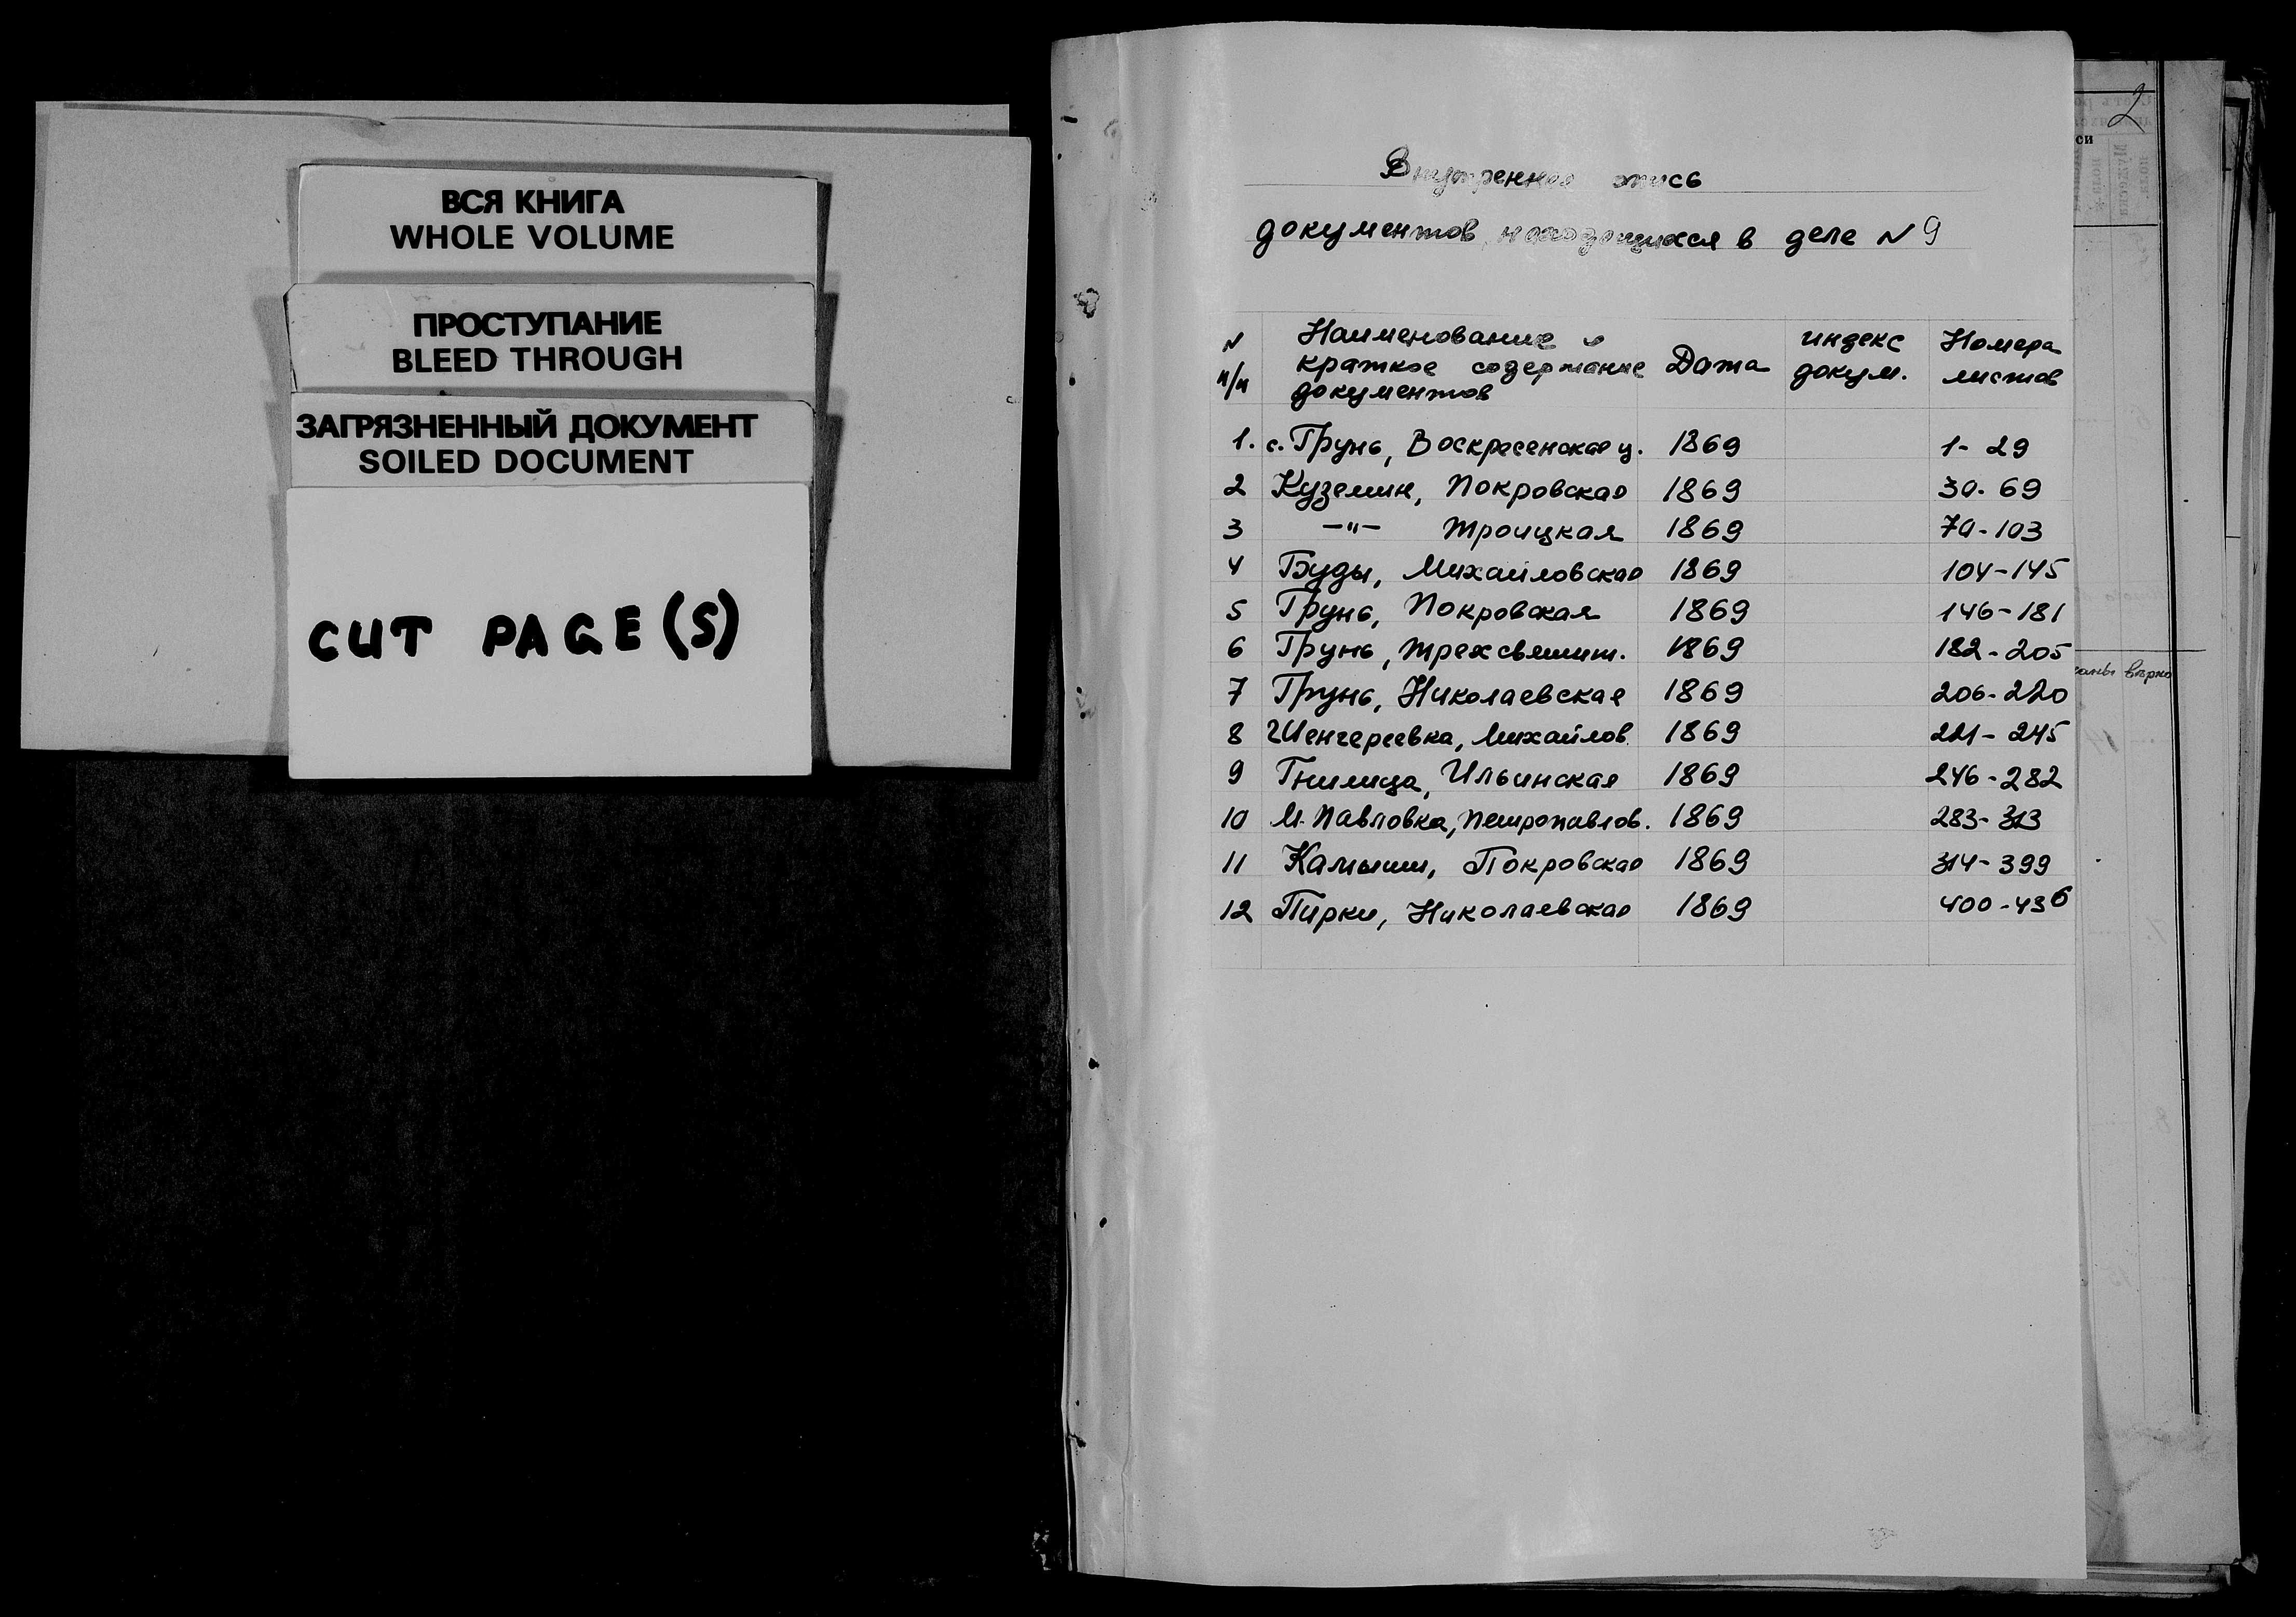 ВСЯ КНИГА
WHOLE VOLUME
ПРОСТУПАНИЕ
BLEED THROUGH
ЗАГРЯЗНЕННЫЙ ДОКУМЕНТ
SOILED DOCUMENT
CUT PAGE(S)
2
Внутренняя опись
документов, находящихся в деле N 9
N п/п Наименование и краткое содержание документов Дата индекс докум. Номера листов
1. с. Грунь, Воскресенская ц. 1869 1-29
2 Куземин, Покровская 1869 30-69
3 -"- Троицкая 1869 70-103
4 Буды, Михайловская 1869 104-145
5 Грунь, Покровская 1869 146-181
6 Грунь, Трехсвятит. 1869 182-205
7 Грунь, Николаевская 1869 206-220
8 Шенгереевка, Михайлов. 1869 221-245
9 Гнилица, Ильинская 1869 246-282
10 М. Павловка, Петропавлов. 1869 283-313
11 Камыши, Покровская 1869 314-399
12 Пирки, Николаевская 1869 400-436
си
верно